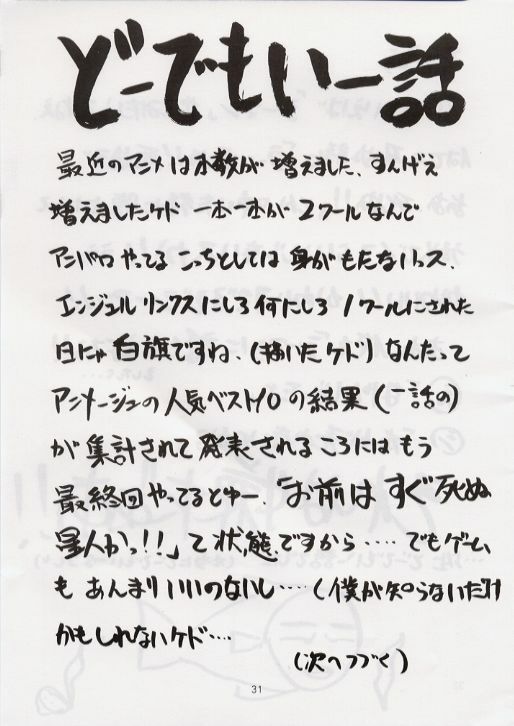 どーでもいー話
最近のアニメは本数が増えました、すんげえ
増えましたケド一本一本が2クールなんで
アンパロやってるこっちとしては身がもたないっス、
エンジェルリンクスにしろ何にしろ1クールにされた
日にゃ白旗ですね、(描いたケド)なんたって
アニメージュの人気ベスト10の結果(一話の)
が集計されて発表されるころにはもう
最終回やってるとゆー、「お前はすぐ死ぬ
星人かっ!!」て状態ですから‥‥でもゲーム
もあんまりいいのないし‥‥(僕が知らないだけ
かもしれないケド‥‥
(次へつづく)
31